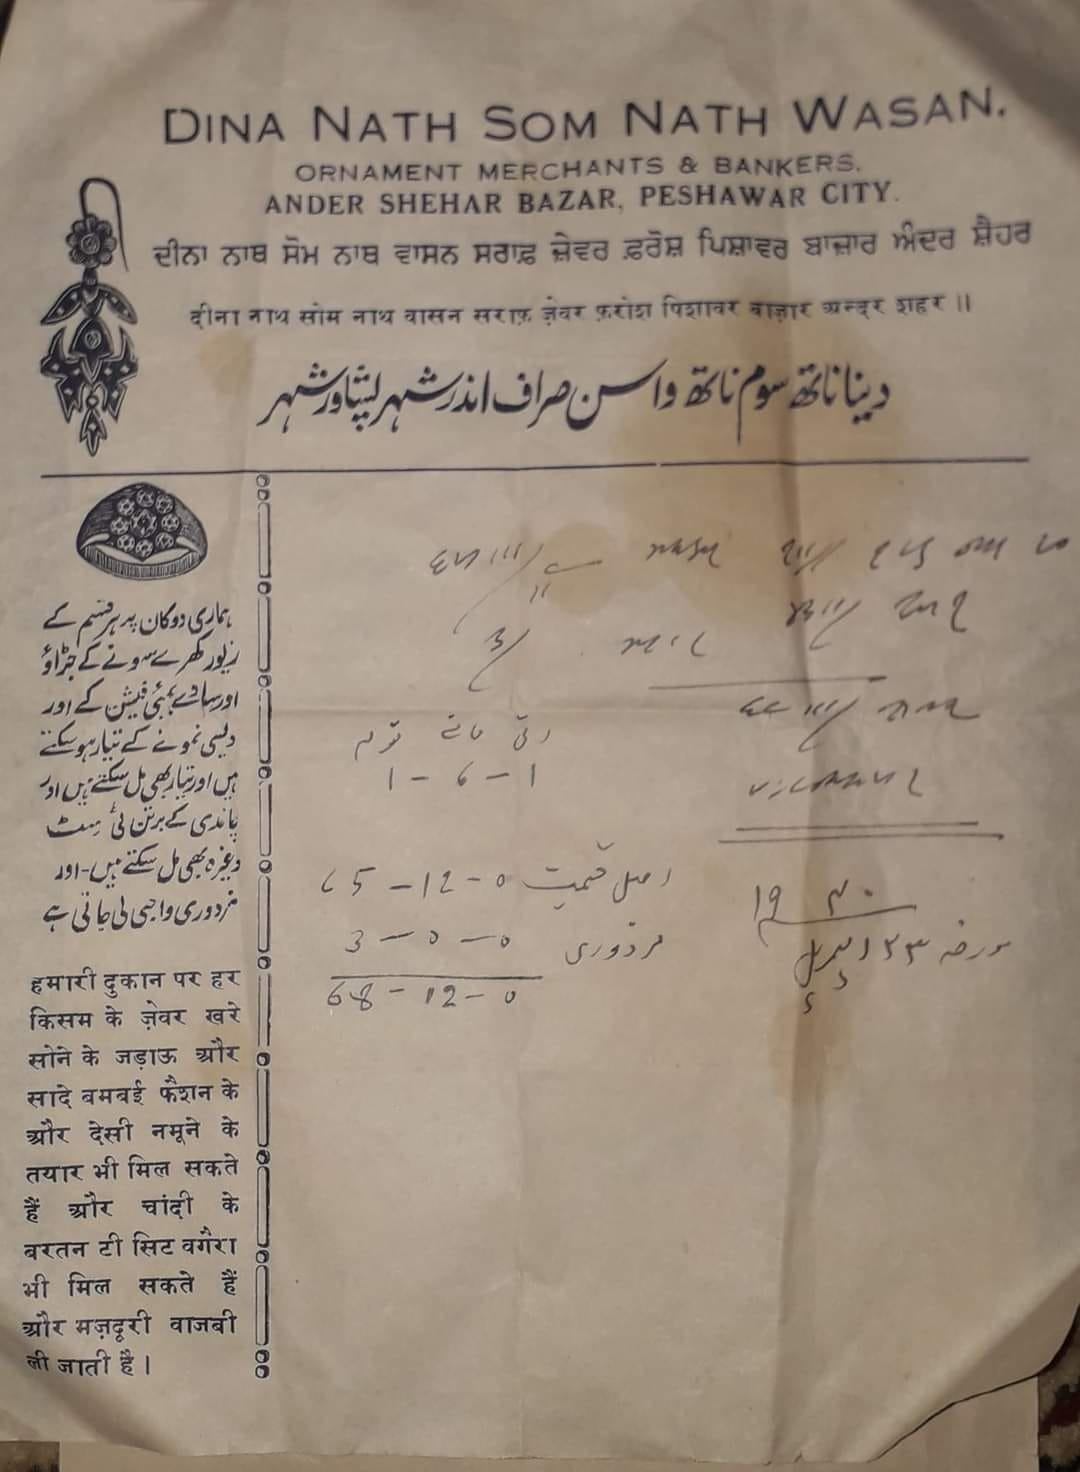 DINA NATH SOM NATH WASAN.
ORNAMENT MERCHANTS & BANKERS.
ANDER SHEHAR BAZAR, PESHAWAR CITY.
ਦੀਨਾ ਨਾਥ ਸੋਮ ਨਾਥ ਵਾਸਨ ਸਰਾਫ਼ ਜ਼ੇਵਰ ਫ਼ਰੋਸ਼ ਪਿਸ਼ਾਵਰ ਬਾਜ਼ਾਰ ਅੰਦਰ ਸ਼ੈਹਰ
दीना नाथ सोम नाथ वासन सराफ़ ज़ेवर फ़रोश पिशावर बाज़ार अन्दर शहर ॥
دینا ناتھ سوم ناتھ واسن صراف اندر شہر پشاور شہر
ہماری دوکان پر ہر قسم کے
زیور کھرے سونے کے جڑاؤ
اور سادے بمبئی فیشن کے اور
دیسی نمونے کے تیار ہو سکتے
ہیں اور تیار بھی مل سکتے ہیں اور
چاندی کے برتن ٹی سٹ
وغیرہ بھی مل سکتے ہیں - اور
مزدوری واجبی لی جاتی ہے
हमारी दुकान पर हर
किसम के ज़ेवर खरे
सोने के जड़ाऊ और
सादे बमबई फैशन के
और देसी नमूने के
तयार भी मिल सकते
हैं और चांदी के
बरतन टी सिट वगैरा
भी मिल सकते हैं
और मज़दूरी वाजबी
ली जाती है।
رتی ماشے تولہ
1 - 6 - 1
اصل قیمت 65 - 12 - 0
مزدوری 3 - 0 - 0
68 - 12 - 0
۱۹۴۰
مورخہ ۲۳ اپریل